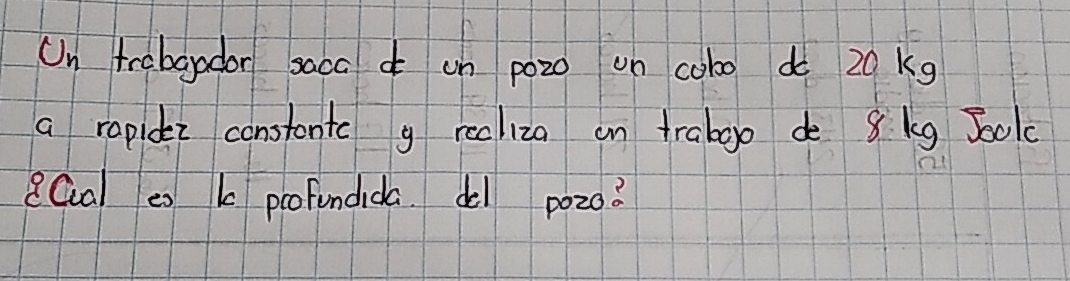 Un trabagador saca de un pozo un cobo de 20 kg
a rapidez constante y realiza un trabajo de 8 kg Joule
¿Cual es la profundida. del pozo?